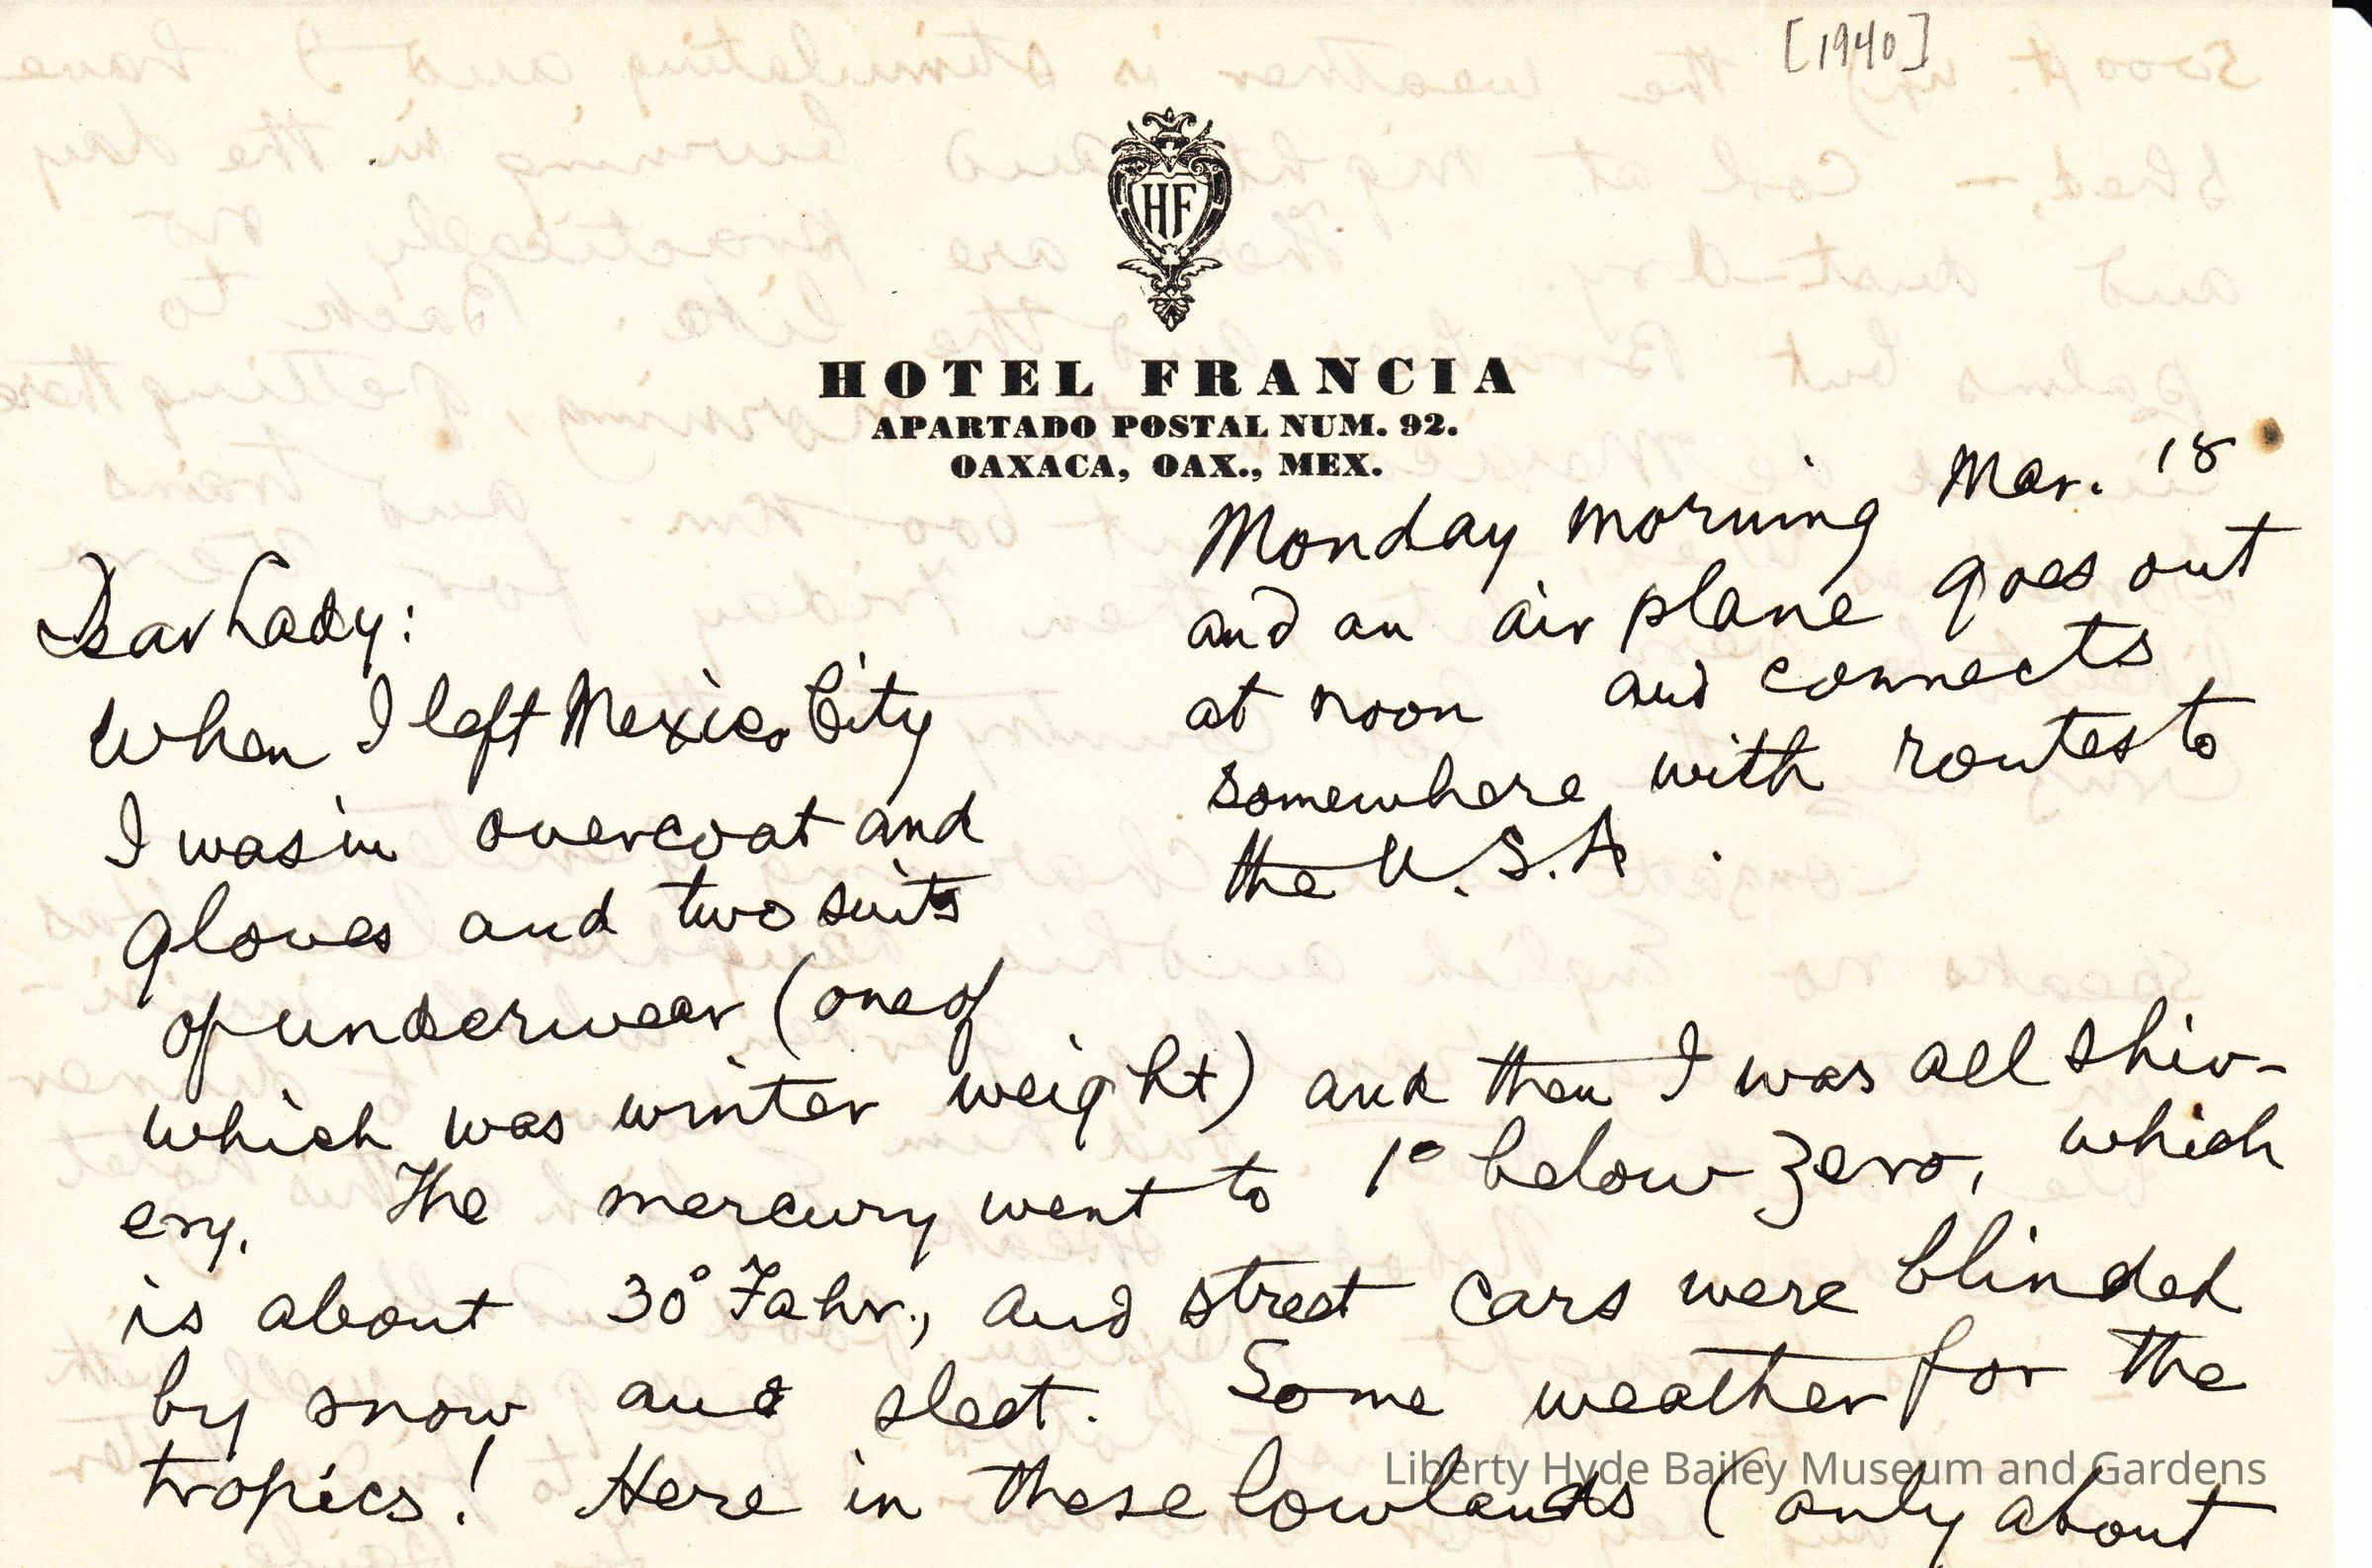 [1940]
HF
HOTEL FRANCIA
APARTADO POSTAL NUM. 92.
OAXACA, OAX., MEX.
Monday morning Mar. 18
and an air plane goes out
at noon and connects
somewhere with routes to
the U.S.A.
Dear Lady:
When I left Mexico City
I was in overcoat and
gloves and two suits
of underwear (one of
which was winter weight) and then I was all shiv-
ery. The mercury went to 1° below zero, which
is about 30° Fahr., and street cars were blinded
by snow and sleet. Some weather for the
tropics! Here in these lowlands (only about
Liberty Hyde Bailey Museum and Gardens